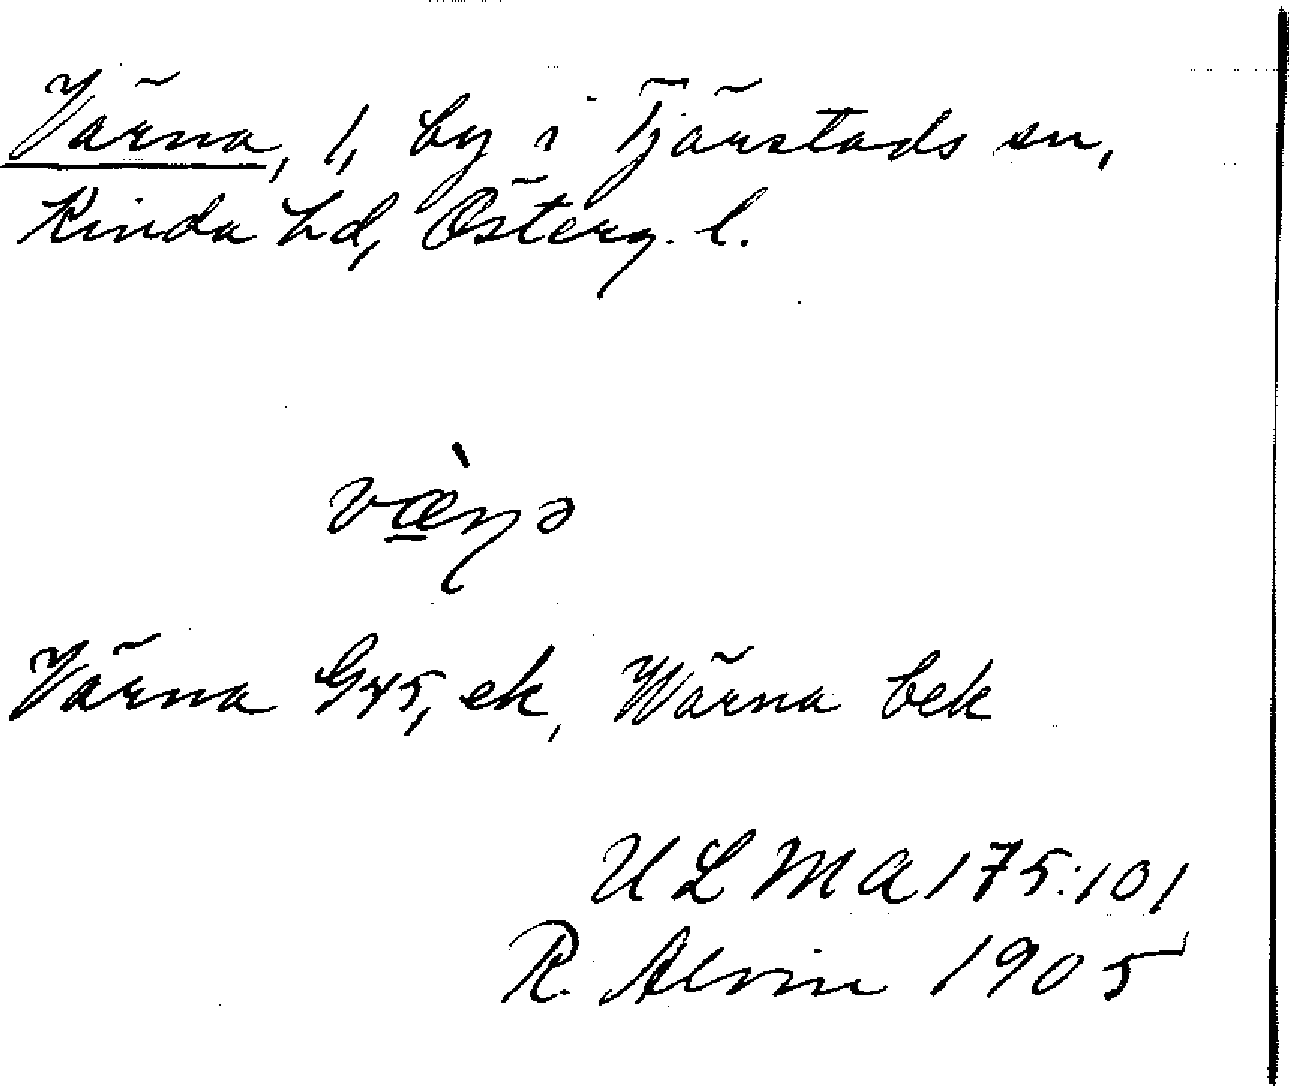 Värna, 1, by i Tjärstads sn,
Kinda hd, Österg. l.
væ̲̀ɳə
Värna G45, ek, Wärna bek
ULMA 175:101
R. Alvin 1905